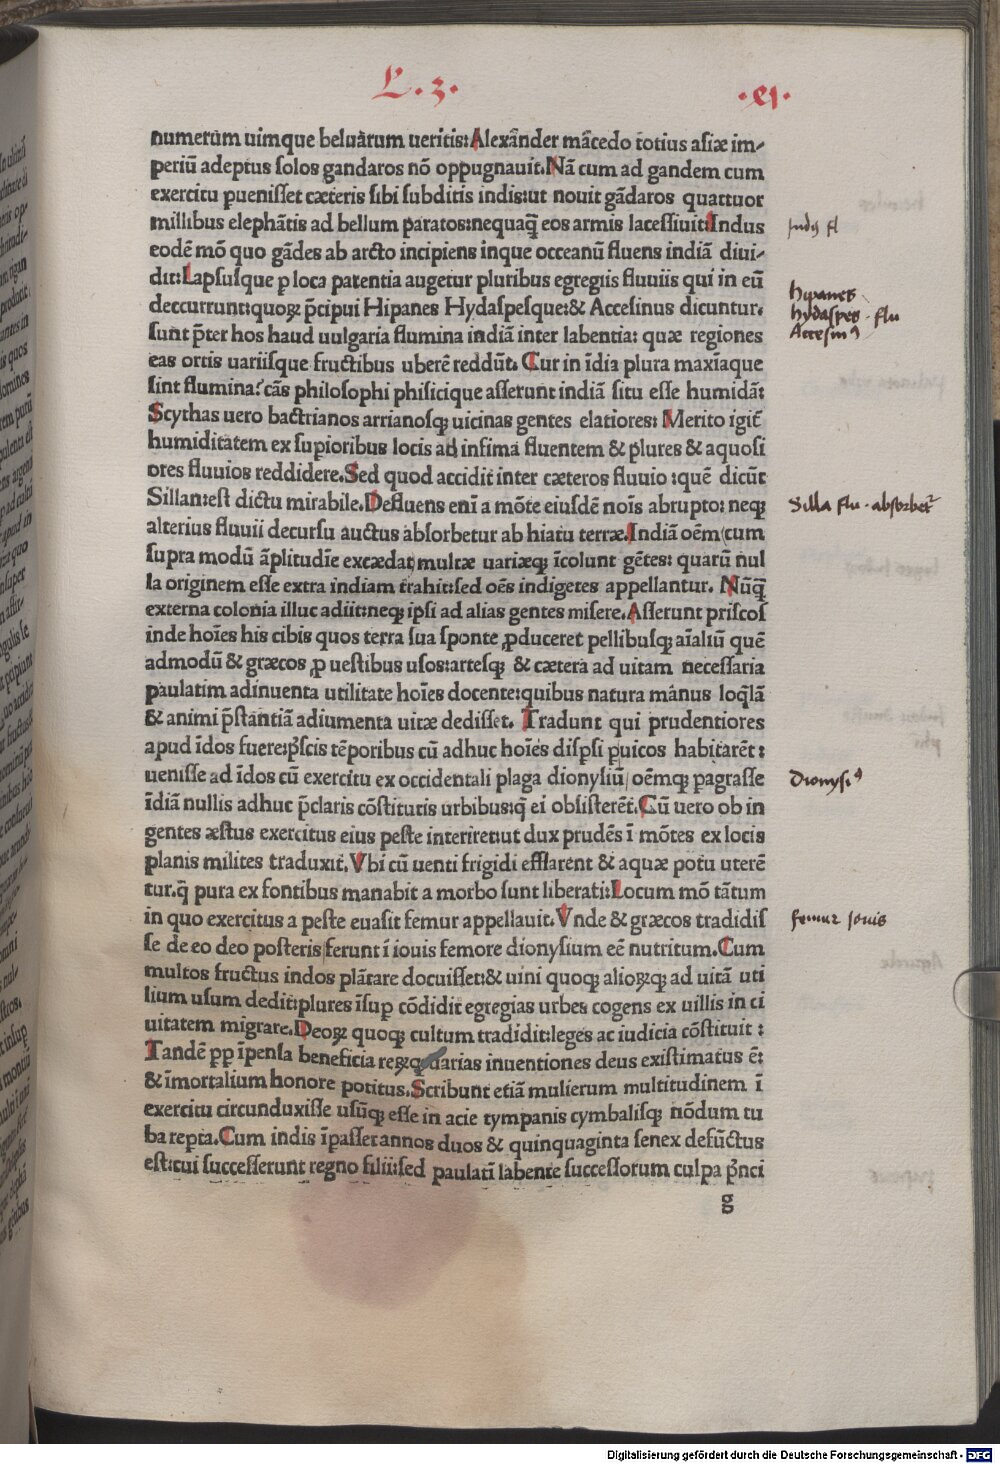 L . 3 .
numerum uimque beluarum ueritis: Alexãnder mãcedo totius asiæ im⸗
periũ adeptus solos gandaros nõ oppugnauit. Nã cum ad gandem cum
exercitu puenisset cæteris sibi subditis indis: ut nouit gãdaros quattuor
millibus elephãtis ad bellum paratos: nequaq̃ eos armis lacessiuit: Indus
eodẽ mõ quo gãdes ab arcto incipiens inque occeanũ fluens indiã diui⸗
dit: Lapsusque p loca patentia augetur pluribus egregiis fluuiis qui in eũ
deccurrunt: quoꝝ p̃cipui Hipanes Hydaspesque: & Accesinus dicuntur.
sunt p̃ter hos haud uulgaria flumina indiã inter labentia: quæ regiones
eas ortis uariisque fructibus uberẽ reddũt. Cur in ĩdia plura maxĩaque
sint flumina? cãs philosophi phisicique asserunt indiã situ esse humidã:
Scythas uero bactrianos arrianosqꝫ uicinas gentes elatiores: Merito igit̃
humiditatem ex supioribus locis ad infima fluentem & plures & aquosi
ores fluuios reddidere. Sed quod accidit inter cæteros fluuio: quẽ dicũt
Sillan: est dictu mirabile. Defluens enĩ a mõte eiusdẽ noĩs abrupto: neqꝫ
alterius fluuii decursu auctus absorbetur ab hiatu terræ. Indiã oẽm cum
supra modũ ãplitudĩe excædat multæ uariæqꝫ ĩcolunt gẽtes: quarũ nul
la originem esse extra indiam trahit: sed oẽs indigetes appellantur. Nũq̃
externa colonia illuc adiit: neqꝫ ipsi ad alias gentes misere. Asserunt priscos
inde hoĩes his cibis quos terra sua sponte ꝓduceret pellibusqꝫ aĩaliũ quẽ
admodũ & græcos ꝓ uestibus usos: artesqꝫ & cætera ad uitam necessaria
paulatim adinuenta utilitate hoĩes docente: quibus natura manus loq̃lã
& animi p̃stantiã adiumenta uitæ dedisset. Tradunt qui prudentiores
apud ĩdos fuere: p̃scis tẽporibus cũ adhuc hoĩes disp̃si p uicos habitarẽt:
uenisse ad ĩdos cũ exercitu ex occidentali plaga dionysiũ oẽmqꝫ pagrasse
ĩdiã nullis adhuc p̃claris cõstitutis urbibus: q̃ ei obsisterẽt. Cũ uero ob in
gentes æstus exercitus eius peste interiret: ut dux prudẽs ĩ mõtes ex locis
planis milites traduxit. Vbi cũ uenti frigidi efflarent & aquæ potu uterẽ
tur. q̃ pura ex fontibus manabit a morbo sunt liberati: Locum mõ tãtum
in quo exercitus a peste euasit femur appellauit. Vnde & græcos tradidis
se de eo deo posteris ferunt ĩ iouis femore dionysium eẽ nutritum. Cum
multos fructus indos plãtare docuisset: & uini quoqꝫ alioꝝqꝫ ad uitã uti
lium usum dedit: plures ĩsup cõdidit egregias urbes cogens ex uillis in ci
uitatem migrare. Deoꝝ quoqꝫ cultum tradidit: leges ac iudicia cõstituit:
Tandẽ pp ĩpensa beneficia reꝝqꝫ uarias inuentiones deus existimatus ẽ:
& ĩmortalium honore potitus. Scribunt etiã mulierum multitudinem ĩ
exercitu circunduxisse usũqꝫ esse in acie tympanis cymbalisqꝫ nõdum tu
ba repta. Cum indis ĩpasset annos duos & quinquaginta senex defũctus
est: cui successerunt regno filii: sed paulatĩ labente successorum culpa p̃nci
g
Indꝰ fl
Hypanes
Hydaspes . flu
Accesinꝰ
Silla flu . absorbet
Dionysiꝰ
femur Jouis
Digitalisierung gefördert durch die Deutsche Forschungsgemeinschaft - DFG